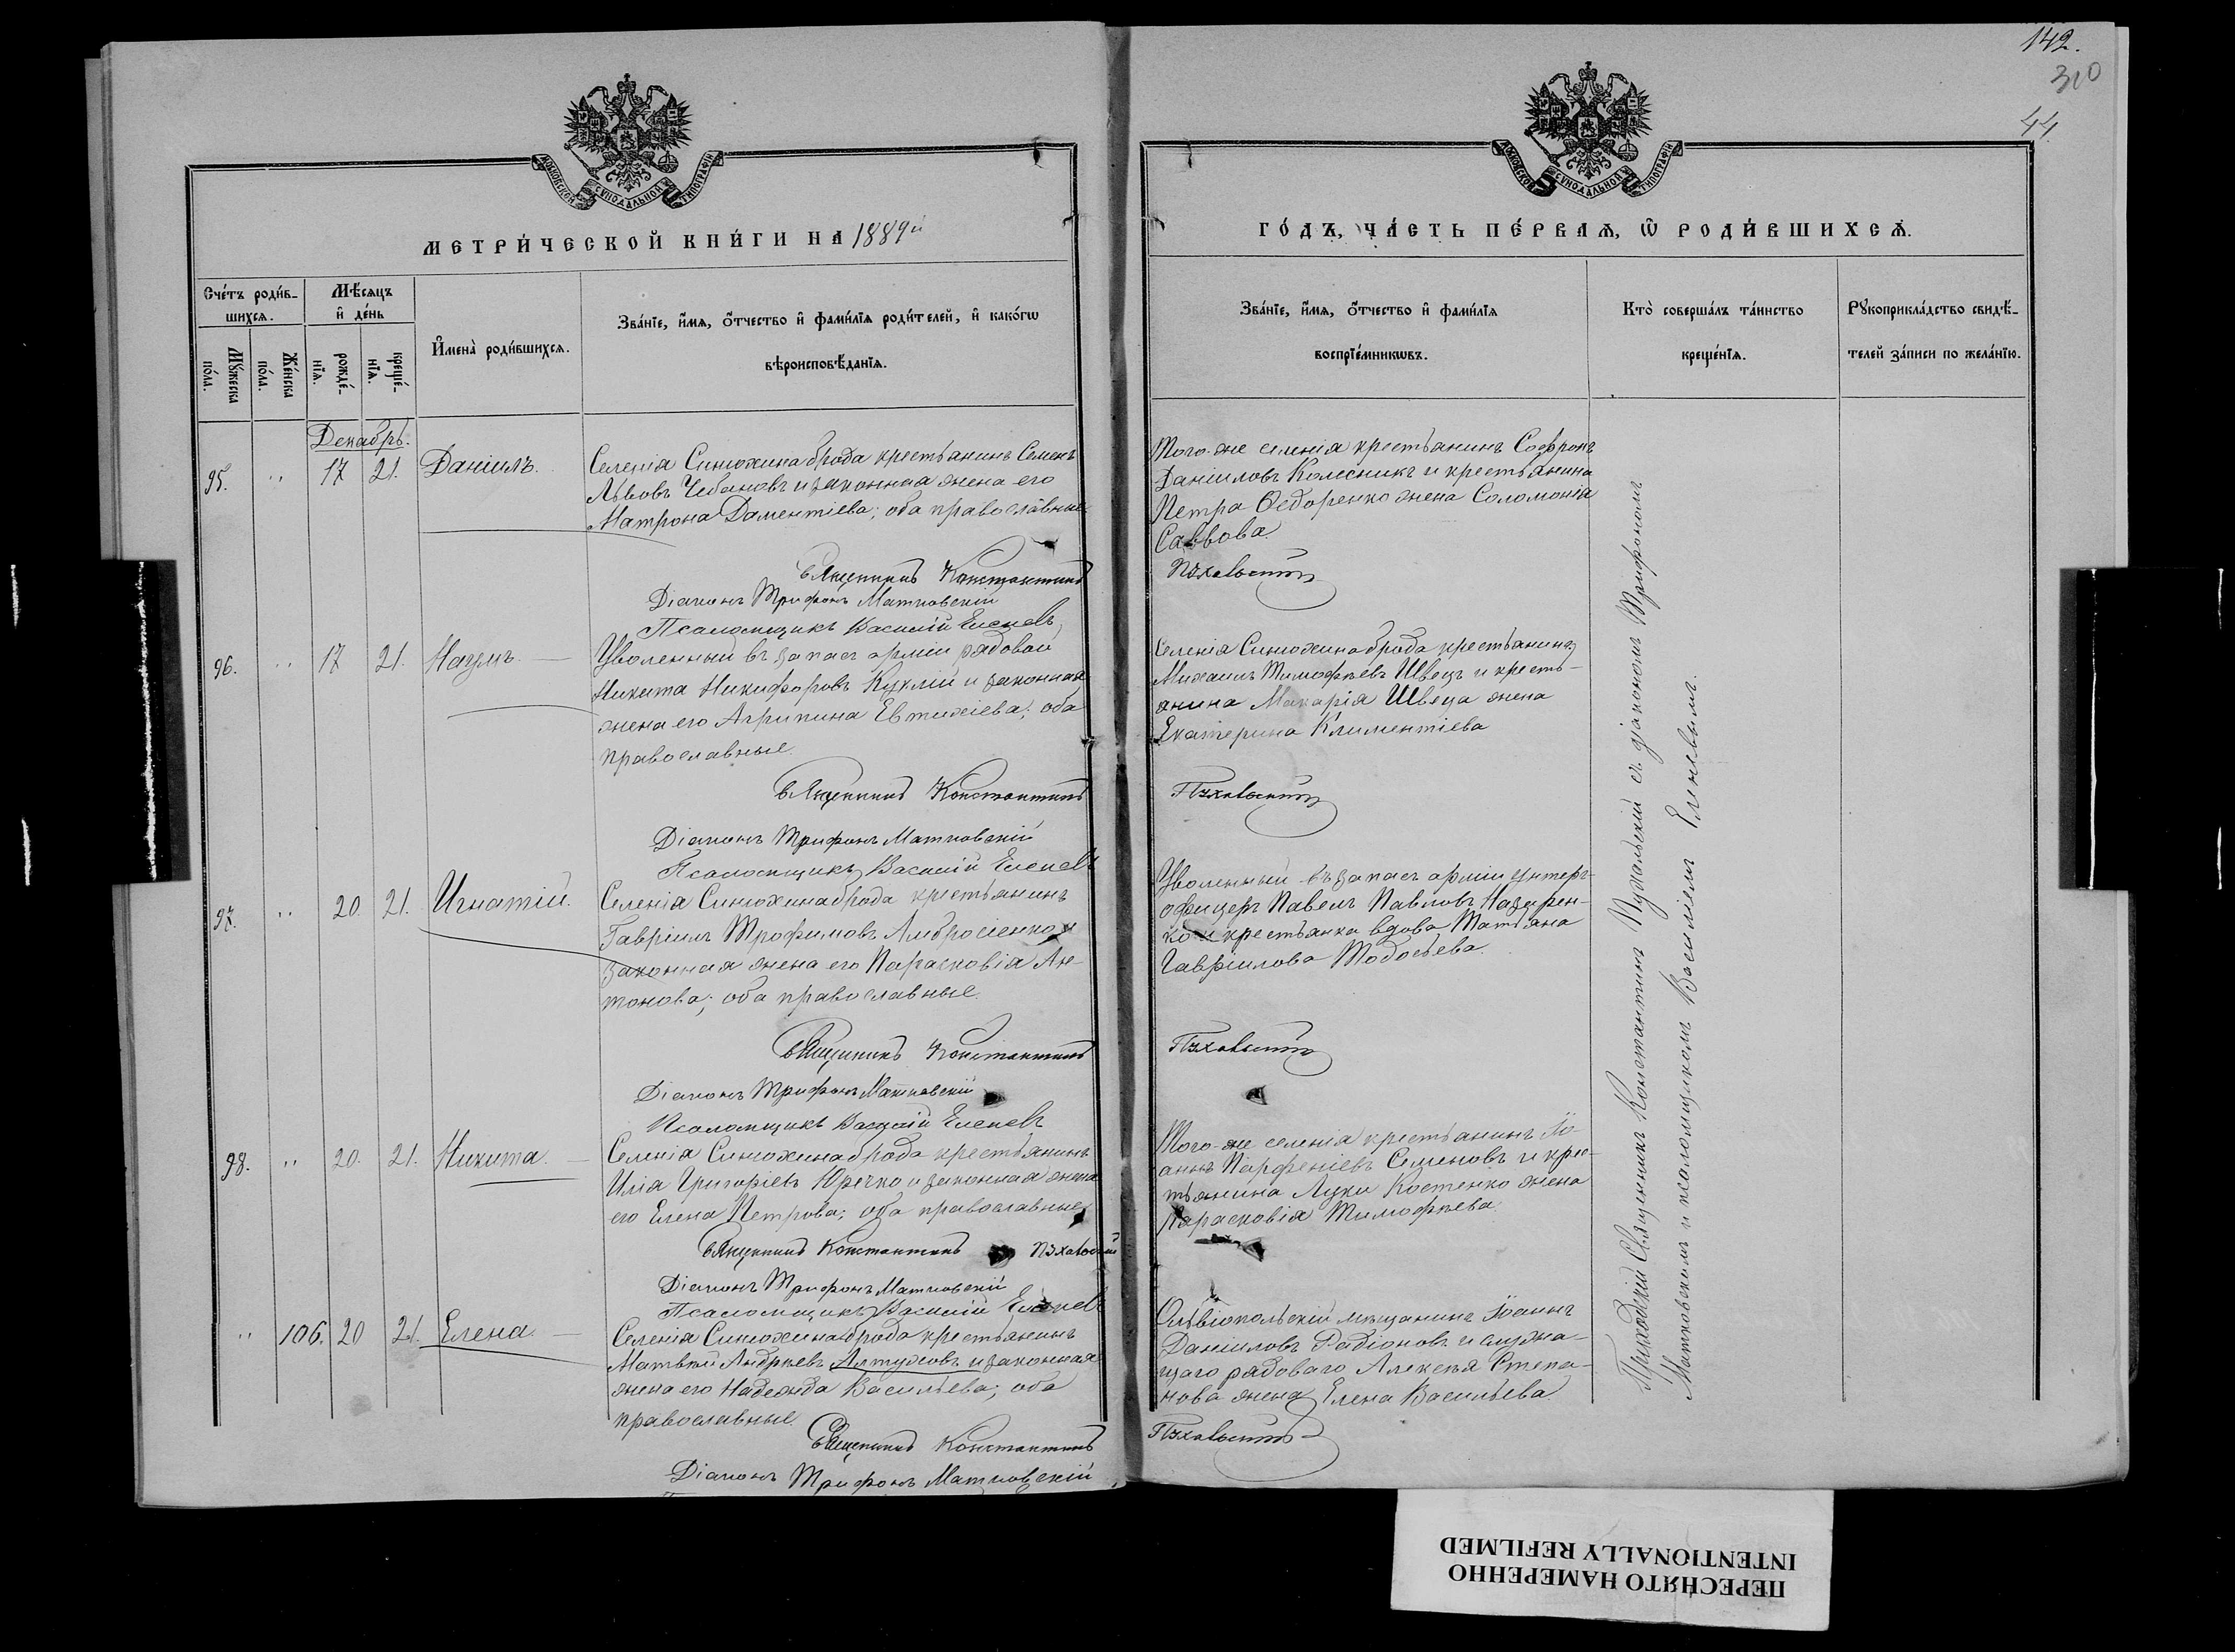 142.
310
44
МОСКОВСКОЙ СѴНОДАЛЬНОЙ ТИПОГРАФІИ
МОСКОВСКОЙ СѴНОДАЛЬНОЙ ТИПОГРАФІИ
МЕТРИ́ЧЕСКОЙ КНИ́ГИ НА 1889й
ГО́ДЪ, ЧА́СТЬ ПЕ́РВАѦ, Ѡ РОДИ́ВШИХСѦ.
Сче́тъ роди́в-
шихсѧ.
Мѣ́сѧцъ
и҆ де́нь
Мꙋ́жеска
по́ла.
Же́нска
по́ла.
рожде́-
нїѧ.
креще́-
нїѧ.
И҆мена̀ роди́вшихсѧ.
Зва́нїе, и҆́мѧ, ѻ҆́тчество и҆ фами́лїѧ роди́телей, и҆ како́гѡ
вѣроисповѣ́данїѧ.
Зва́нїе, и҆́мѧ, ѻ҆́тчество и҆ фами́лїѧ
воспрїе́мникѡвъ.
Кто̀ соверша́лъ та́инство
креще́нїѧ.
Рꙋкоприкла́дство свидѣ́-
телей за́писи по жела́нїю.
Декабрь.
95. " 17 21. Даніилъ.
Селенія Синюхина брода крестьянинъ Семенъ
Львовъ Чебановъ и законная жена его
Матрона Даментіева; оба православные
Священникъ Константинъ
Діаконъ Трифонъ Матковскій
Псаломщикъ Василій Еленевъ
Того-же селенія крестьянинъ Софронъ
Даніиловъ Колесникъ и крестьянина
Петра Ѳедоренко жена Соломонія
Саввова
Пухальскій
96. " 17 21. Наумъ.
Уволенный въ запасъ арміи рядовой
Никита Никифоровъ Куклій и законная
жена его Агрипина Евтихіева; оба
православные.
Священникъ Константинъ
Діаконъ Трифонъ Матковскій
Псаломщикъ Василій Еленевъ
Селенія Синюхина брода крестьянинъ
Михаилъ Тимофѣевъ Швецъ и кресть-
янина Макарія Швеца жена
Екатерина Климентіева
Пухальскій
97. " 20. 21. Игнатій.
Селенія Синюхина брода крестьянинъ
Гавріилъ Трофимовъ Амбросіенко и
законная жена его Парасковія Ан-
тонова; оба православные.
Священникъ Константинъ
Діаконъ Трифонъ Матковскій
Псаломщикъ Василій Еленевъ
Уволенный въ запасъ арміи унтеръ-
офицеръ Павелъ Павловъ Назарен-
ко и крестьянка вдова Татьяна
Гавріилова Тодосьева.
Пухальскій
98. " 20. 21. Никита.
Селенія Синюхина брода крестьянинъ
Илія Григоріевъ Юречко и законная жена
его Елена Петрова; оба православные
Священникъ Константинъ Пухальскій
Діаконъ Трифонъ Матковскій
Псаломщикъ Василій Еленевъ
Того-же селенія крестьянинъ Іо-
аннъ Парфеніевъ Семеновъ и крес-
тьянина Луки Костенко жена
Парасковія Тимофѣева
" 106. 20 21. Елена.
Селенія Синюхина брода крестьянинъ
Матвѣй Андрѣевъ Алтуховъ и законная
жена его Надежда Васильева; оба
православные.
Священникъ Константинъ
Діаконъ Трифонъ Матковскій
Ольвіопольскій мѣщанинъ Іоаннъ
Даніиловъ Радіоновъ и служа-
щаго рядоваго Алексѣя Степа-
нова жена Елена Васильева
Пухальскій
Приходскій Священникъ Константинъ Пухальскій съ діакономъ Трифономъ
Матковскимъ и псаломщикомъ Василіемъ Еленевымъ.
ПЕРЕСНЯТО НАМЕРЕННО
INTENTIONALLY REFILMED